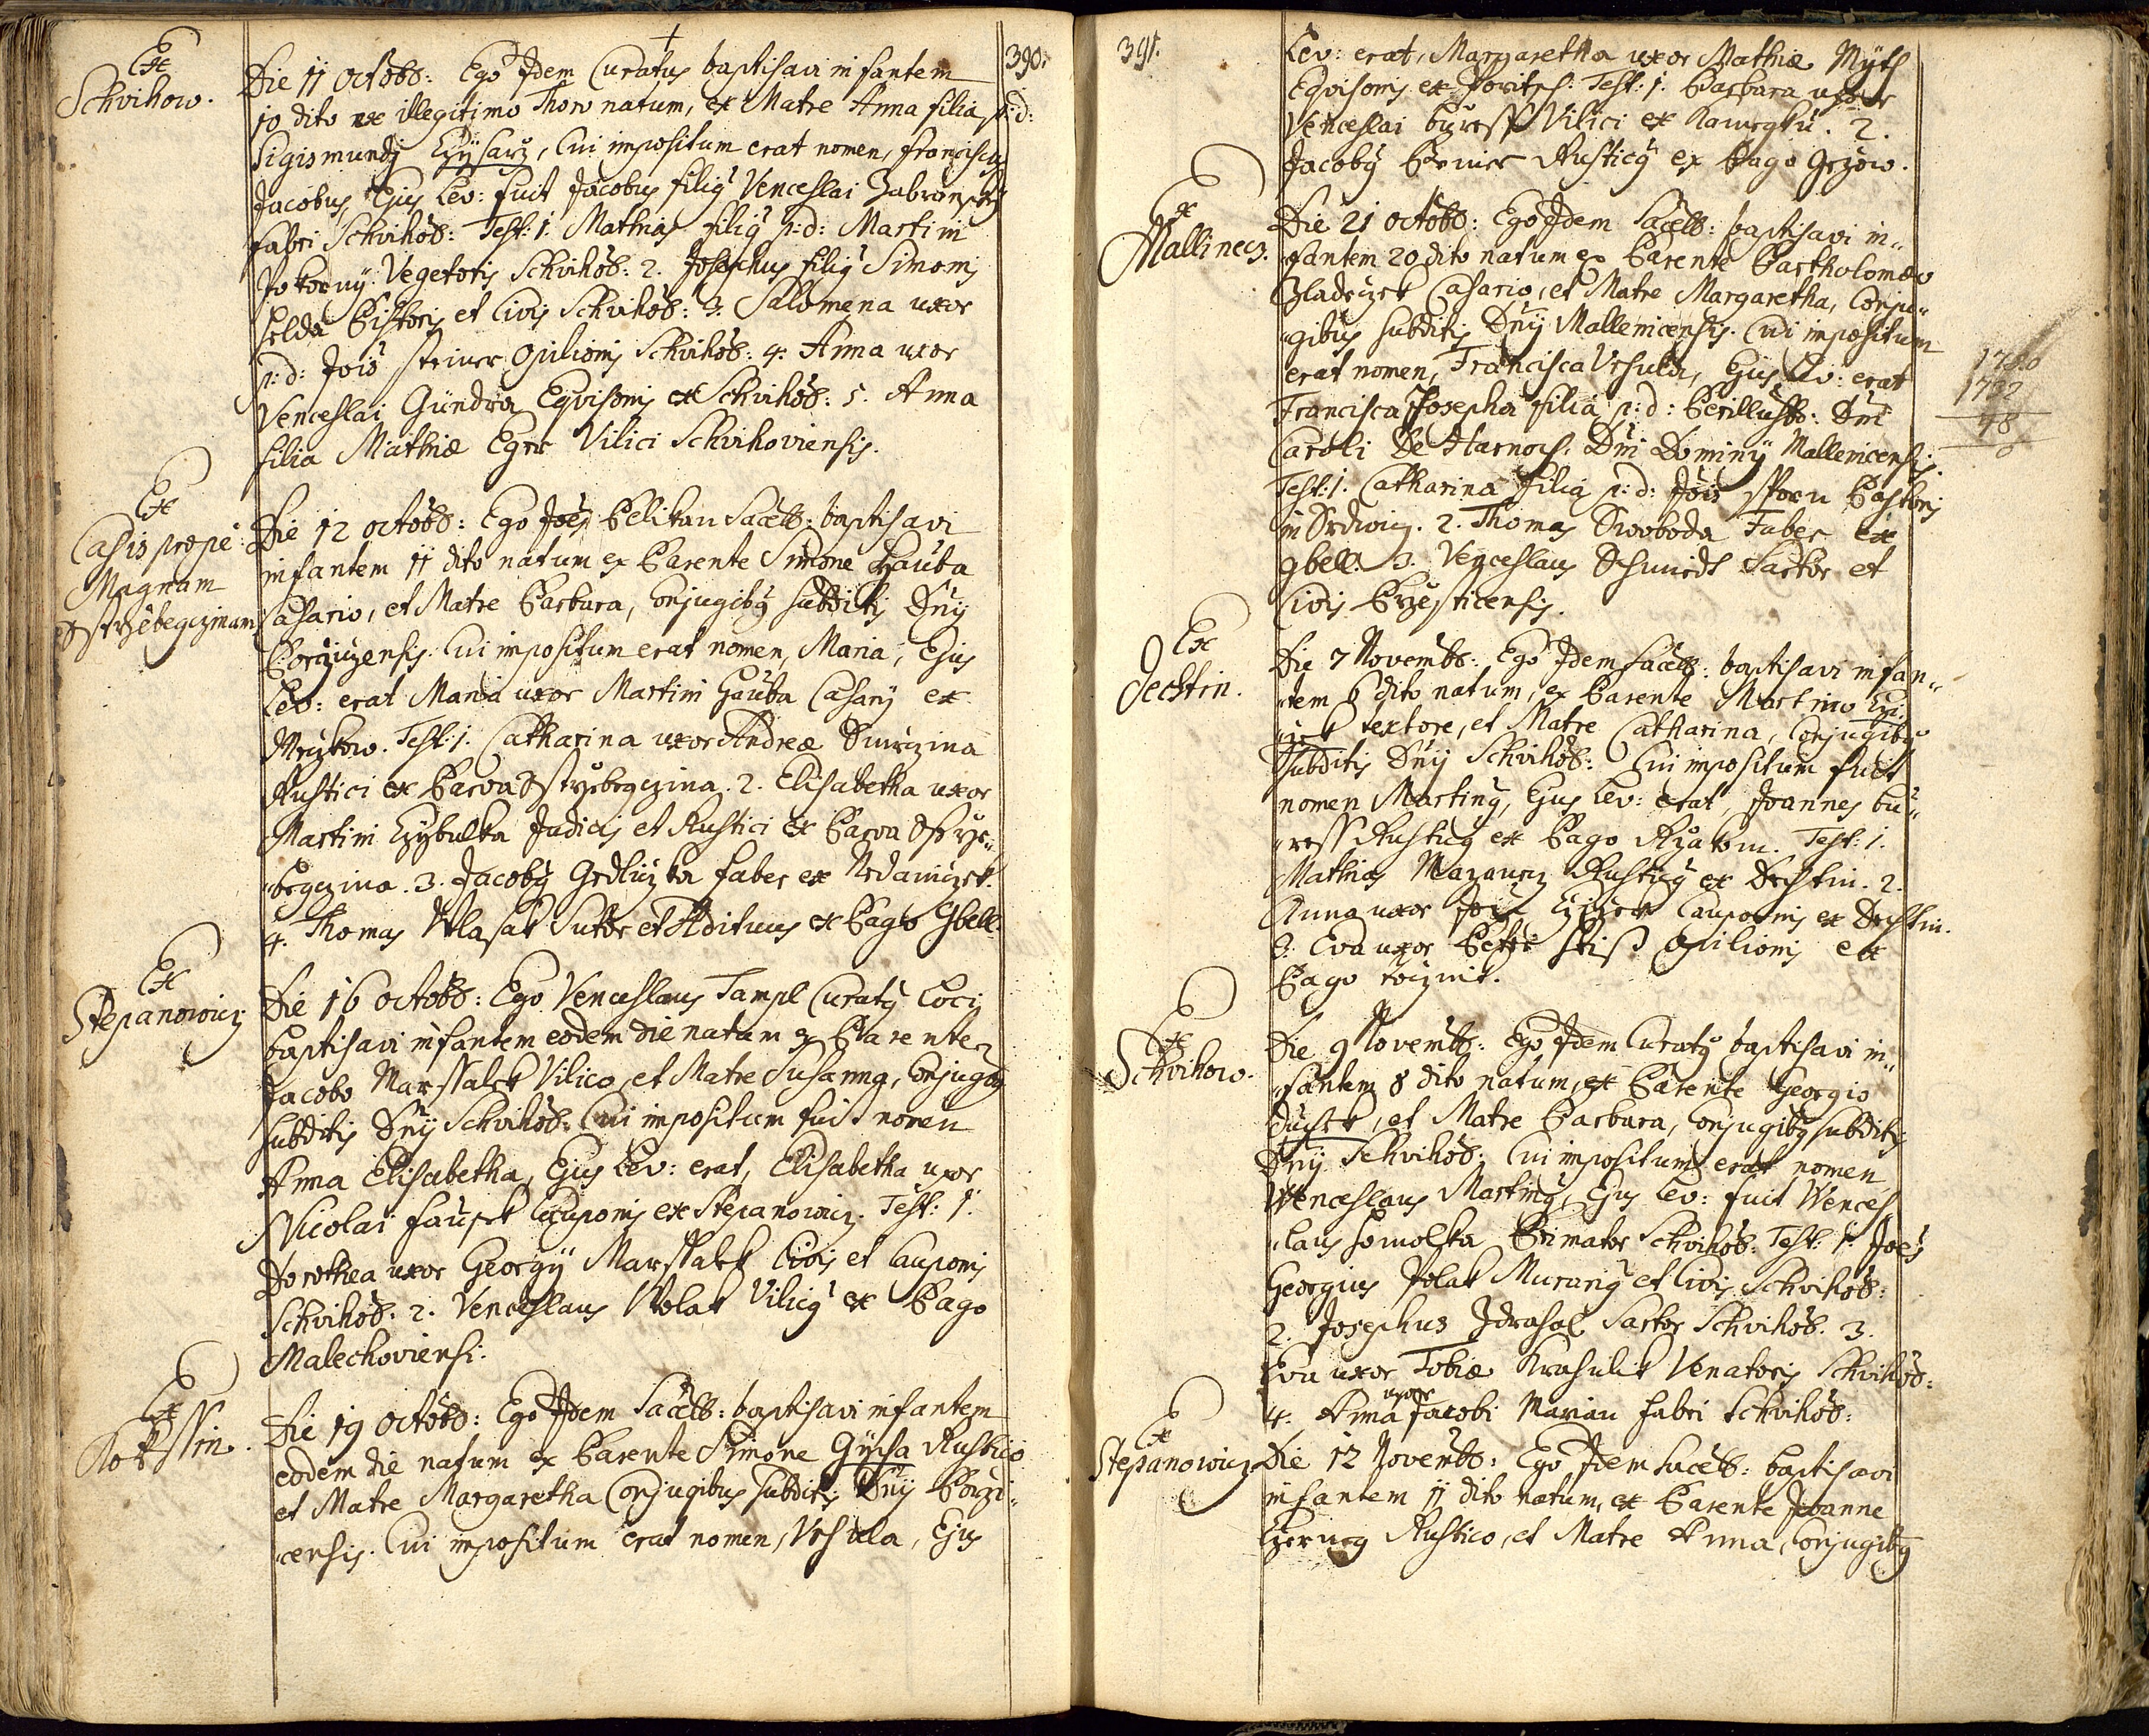 390.
Ex
Schvihow.
Die 11 Octobr: Ego Idem Curatus baptisavi infantem
10 dito ex illegitimo Thoro natum, ex Matre Anna filia p:d:
Sigismundi Czysarz, Cui impositum erat nomen, Franciscus
Jacobus, Ejus Lev: fuit Jacobus filiq Venceslai Zabranský
fabri Schvihob: Test: 1. Mathias filiq p:d: Martini
Pokorny Vegetoris Schvihob: 2. Josephus filiq Simonis
Selda Pistoris et Civis Schvihob: 3. Salomena uxor
p:d: Jois Steiner Opilionis Schvihob: 4. Anna uxor
Venceslai Gündra Eqvisonis ex Schvihob: 5. Anna
filia Mathiæ Eger Vilici Schvihoviensis.
Ex
Casis prope
Magnam
Die 12 Octobr: Ego Joes Pelikan Sacell: baptisavi
infantem 11 dito natum ex Parente Simone Hauba
Casario, et Matre Barbara, Conjugibq subditis Dnÿ
Poržizensis. Cui impositum erat nomen, Maria, Ejus
Lev: erat Maria uxor Martini Hauba Casarij ex
Test: 1. Catharina uxor Andreæ
Rustici ex Parva 2. Elisabetha uxor
Martini Czybulka Judicis et Rustici ex Parva
3. Jacobq Grdliczka faber ex Nedaniczek.
4. Thomas Wlasak Sutor et Ædituus ex Pago Gbell.
Ex
Stepanowicz
Die 16 Octobr: Ego Venceslaus Tampl Curatq Loci
baptisavi infantem eodem die natam ex Parente
Jacobo Marssalek Vilico, et Matre Susanna, Conjugibq
subditis Dnÿ Schvihob: Cui impositum fuit nomen
Anna Elisabetha, Ejus Lev: erat, Elisabetha uxor
Nicolai Fausek Cauponis ex Stepanowicz. Test: 1.
Dorothea uxor Georgÿ Marssalek Civis et Cauponis
Schvihob: 2. Venceslaus Wolak Vilicq ex Pago
Malechoviensi.
Ex
Kokssin.
Die 19 Octobr: Ego Idem Sacell: baptisavi infantem
eodem die natum ex Parente Simone Gycha Rustico
et Matre Margaretha Conjugibus subditis Dnÿ Porži-
censis. Cui impositum erat nomen, Ursula, Ejus
391.
Lev: erat, Margaretha uxor Mathiæ
Eqvisonis ex Test: 1. Barbara uxor
Venceslai Buress Vilici ex 2.
Jacobq Rusticq ex Pago
Ex
Mallinecz.
Die 21 Octobr: Ego Idem Sacell: baptisavi in-
fantem 20 dito natum ex Parente Bartholomæo
Hladeczek Casario, et Matre Margaretha, Conju-
gibus subditis Dnÿ Mallenicensis. Cui impositum
erat nomen, Francisca Ursula, Ejus Lev: erat
Francisca Josepha filia p:d: Perillustr: Dni
Caroli De Harnoch. Dni Dominÿ Mallenicensis.
Test: 1. Catharina filia p:d: Jois Pastoris
in 2. Thomas Swoboda Faber ex
Gbell. 3. Venceslaus Schmidt Sartor et
Civis Przesticensis.
1780
1732
48
0
Ex
Dechtin.
Die 7 Novembr: Ego Idem Sacell: baptisavi infan-
tem 6 dito natum, ex Parente Martino
textore, et Matre Catharina, Conjugibq
Subditis Dnÿ Schvihob: Cui impositum fuit
nomen Martinq, Ejus Lev: erat, Joannes Bu-
ress Rusticq ex Pago Test: 1.
Mathias Mazaurz Rusticq ex Dechtin. 2.
Anna uxor Jois Cauponis ex Dechtin.
3. Eva uxor Petri Opilionis ex
Pago
Ex
Schvihow.
Die 9 Novembr: Ego Idem Curatq baptisavi in-
fantem 8 dito natum, ex Parente Georgio
Dussek, et Matre Barbara, Conjugibq subditis
Dnÿ Schvihob: Cui impositum erat nomen
Wenceslaus Martinq, Ejus Lev: fuit Wences-
laus Homolka Primator Schvihob: Test: 1. Joes
Georgius Polak Murariq et Civis Schvihob:
2. Josephus Zdrahal Sartor Schvihob: 3.
Eva uxor Tobiæ Krahulik Venatoris Schvihob:
4. Anna uxor Jacobi Marian fabri Schvihob:
Ex
Stepanowicz
Die 12 Novembr: Ego Idem Sacell: baptisavi
infantem 11 dito natum, ex Parente Joanne
Czerny Rustico, et Matre Anna, Conjugibq